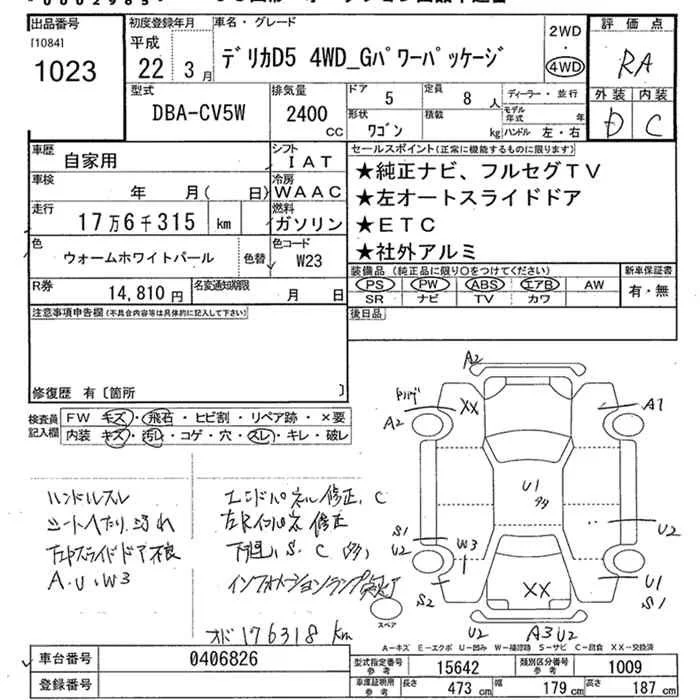 出品番号
[1084]
1023
初度登録年月
平成
22年 3月
車名・グレード
デリカD5 4WD_Gパワーパッケージ
2WD
・
4WD
評価点
RA
外装 内装
D C
型式
DBA-CV5W
排気量
2400
CC
ドア
5
定員
8 人
ディーラー・並行
形状
ワゴン
積載
kg
モデル年式 年
ハンドル 左・右
車歴
自家用
シフト
IAT
車検
年 月( 日)
冷房
WAAC
走行
17万6千315 km
燃料
ガソリン
色
ウォームホワイトパール
色替
色コード
W23
R券
14,810円
名変通知期限
月 日
セールスポイント(正常に機能するものに限ります)
★純正ナビ、フルセグTV
★左オートスライドドア
★ETC
★社外アルミ
装備品(純正品に限り○をつけてください)
PS PW ABS エアB AW
SR ナビ TV カワ
新車保証書
有・無
注意事項申告欄(不具合内容等は具体的に記入して下さい)
後日品
修復歴 有〔箇所 〕
検査員記入欄
FW キズ・飛石・ヒビ割・リペア跡・×要
内装 キズ・汚レ・コゲ・穴・スレ・キレ・破レ
ハンドルスレ
シートヘタリ、汚れ
左スライドドア不良
A.U.W3
エンドパネル修正、C
左Rインパネ修正
下回り S.C(多)
インフォメーションランプ点灯
オド 176318 km
A2
XX
A2
A1
U1
多
S1
U2
W3
U2
S2
XX
U1
S1
U2
A3 U2
スペア
A-キズ E-エクボ U-凹み W-補修跡 S-サビ C-腐食 XX-交換済
車台番号
0406826
登録番号
型式指定番号
参考
15642
類別区分番号
参考
1009
車庫証明用
参考
長さ 473 cm
幅 179 cm
高さ 187 cm